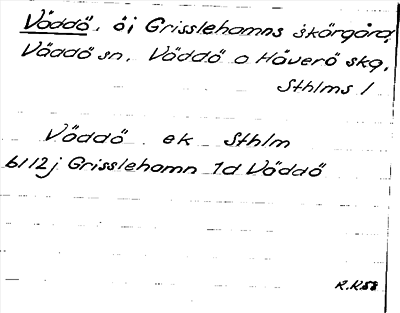 Väddö, ö i Grisslehamns skärgård,
Väddö sn, Väddö o Häverö skg,
Sthlms l
Väddö ek Sthlm
6112j Grisslehamn 1d Väddö
R.K58